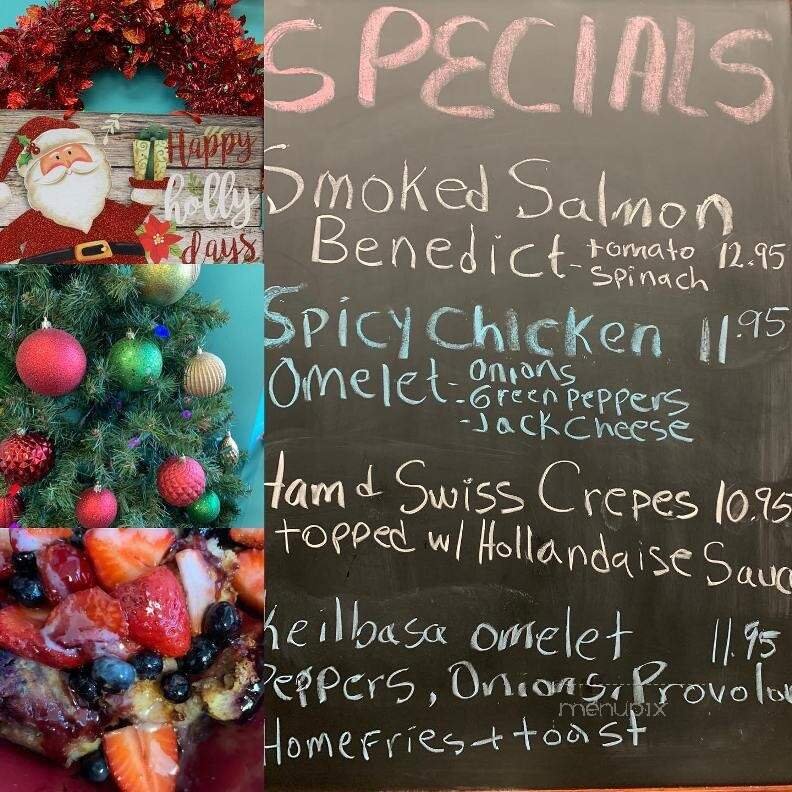 Happy
holly
days
SPECIALS
Smoked Salmon
Benedict - tomato 12.95
spinach
Spicy Chicken 11.95
Omelet - onions
- Green Peppers
- Jack Cheese
Ham & Swiss Crepes 10.95
topped w/ Hollandaise Sauc
Keilbasa omelet 11.95
Peppers, Onions, Provolo
Homefries + toast
menupix